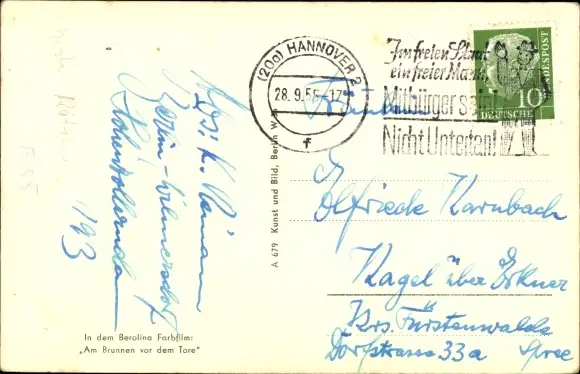 (20a) HANNOVER 2
28. 9. 55-17
f
Im freien Staat
ein freier Mann,
Mitbürger sein
Nicht Untertan!
DEUTSCHE
BUNDESPOST
10
Fräulein
Elfriede Karnbach
Kagel über Erkner
Krs. Fürstenwalde
Spree
Dorfstrasse 33a
Berlin-Wilmersdorf
Hohenzollerndamm
193
A 679 Kunst und Bild, Berlin W
In dem Berolina Farbfilm:
„Am Brunnen vor dem Tore"